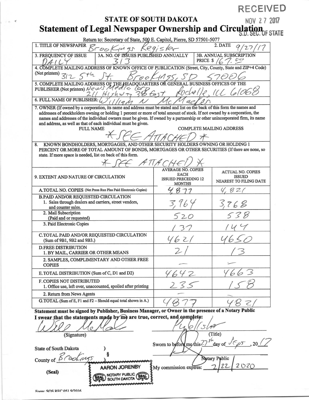 RECEIVED
NOV 27 2017
S.D. SEC. OF STATE
STATE OF SOUTH DAKOTA
Statement of Legal Newspaper Ownership and Circulation
Return to: Secretary of State, 500 E. Capitol, Pierre, SD 57501-5077
1. TITLE OF NEWSPAPER Brookings Register
2. DATE 9/27/17
3. FREQUENCY OF ISSUE DAILY
3A. NO. OF ISSUES PUBLISHED ANNUALLY 313
3B. ANNUAL SUBSCRIPTION PRICE $
4. COMPLETE MAILING ADDRESS OF KNOWN OFFICE OF PUBLICATION (Street, City, County, State and ZIP+4 Code)
(Not printers) 312 5th St. Brookings SD 57006
5. COMPLETE MAILING ADDRESS OF THE HEADQUARTERS OF GENERAL BUSINESS OFFICES OF THE
PUBLISHER (Not printers) News Media Corp
211 Highway 38 East Rochelle, IL 61068
6. FULL NAME OF PUBLISHER: William N McMacken
7. OWNER (If owned by a corporation, its name and address must be stated and list on the back of this form the names and
addresses of stockholders owning or holding 1 percent or more of total amount of stock. If not owned by a corporation, the
names and addresses of the individual owners must be given. If owned by a partnership or other unincorporated firm, its name
and address, as well as that of each individual must be given.
FULL NAME
COMPLETE MAILING ADDRESS
* SEE ATTACHED *
8. KNOWN BONDHOLDERS, MORTGAGES, AND OTHER SECURITY HOLDERS OWNING OR HOLDING 1
PERCENT OR MORE OF TOTAL AMOUNT OF BONDS, MORTGAGES OR OTHER SECURITIES (If there are none, so
state. If more space is needed, list on back of this form.
* SEE ATTACHED *
9. EXTENT AND NATURE OF CIRCULATION
AVERAGE NO. COPIES EACH ISSUED PRECEDING 12 MONTHS
ACTUAL NO. COPIES ISSUED NEAREST TO FILING DATE
A. TOTAL NO. COPIES (Net Press Run Plus Paid Electronic Copies) 4877 4,821
B. PAID AND/OR REQUESTED CIRCULATION
1. Sales through dealers and carriers, street vendors,
and counter sales. 3,964 3,968
2. Mail Subscription
(Paid and or requested) 520 538
3. Paid Electronic Copies 137 144
C. TOTAL PAID AND/OR REQUESTED CIRCULATION
(Sum of 9B1, 9B2 and 9B3.) 4621 4650
D. FREE DISTRIBUTION
1. BY MAIL, CARRIER OR OTHER MEANS 21 13
2. SAMPLES, COMPLIMENTARY AND OTHER FREE
COPIES
E. TOTAL DISTRIBUTION (Sum of C, D1 and D2) 4642 4663
F. COPIES NOT DISTRIBUTED
1. Office use, left over, unaccounted, spoiled after printing 235 158
2. Return from News Agents
G. TOTAL (Sum of E, F1 and F2 – Should equal total shown in A.) 4877 4821
Statement must be signed by Publisher, Business Manager, or Owner in the presence of a Notary Public
I swear that the statements made by me are true, correct, and complete:
Publisher
(Signature) (Title)
State of South Dakota )
County of Brookings )
Sworn to before me this 27th day of Sept, 2017
Notary Public
(Seal) AARON JORENBY
NOTARY PUBLIC
SOUTH DAKOTA
SEAL
My commission expires: 7/22/2020